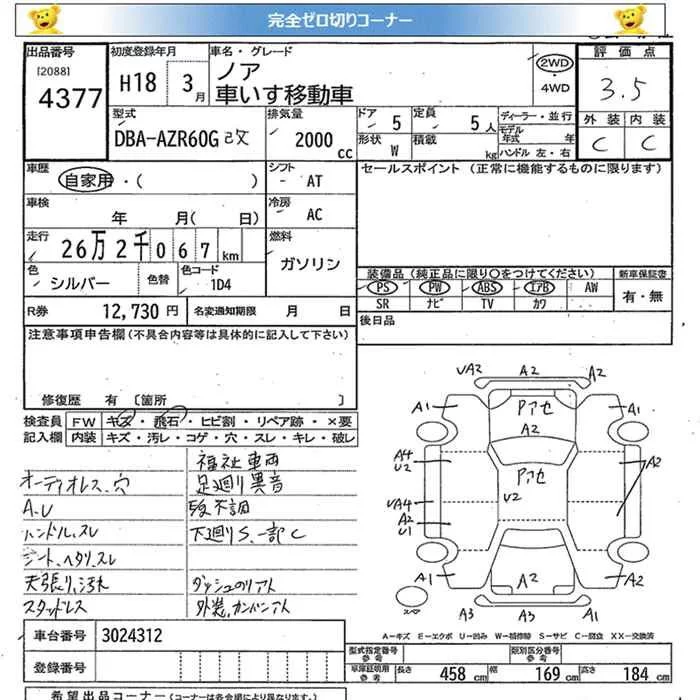 完全ゼロ切りコーナー
出品番号
[2088]
4377
初度登録年月
H18 3月
車名・グレード
ノア
車いす移動車
2WD
・
4WD
評価点
3.5
外装 内装
C C
型式
DBA-AZR60G 改
排気量
2000 cc
ドア 5
形状 W
定員 5人
積載 kg
ディーラー・並行
モデル年式 年
ハンドル 左・右
車歴
自家用・( )
シフト
- AT
車検
年 月( 日)
冷房
AC
走行
26万2千067km
燃料
ガソリン
色
シルバー
色替
色コード
1D4
R券 12,730円
名変通知期限 月 日
セールスポイント (正常に機能するものに限ります)
装備品(純正品に限り○をつけてください)
新車保証書
PS PW ABS エアB AW
SR ナビ TV カワ
有・無
後日品
注意事項申告欄(不具合内容等は具体的に記入して下さい)
修復歴 有 〔箇所 〕
検査員
記入欄
FW キズ・飛石・ヒビ割・リペア跡・×要
内装 キズ・汚レ・コゲ・穴・スレ・キレ・破レ
福祉車両
オーディオレス、穴
足廻り異音
A.U
ハンドル、スレ
下廻りS、一部C
シート、ヘタリ、スレ
天張り、汚れ
スタッドレス
VA2 A2 A2
A1 Pアセ A1
A2
A4
U2
Pアセ
A2
U2
VA4
A2
U1
A1 A2 A2
A3 A3 A1
A-キズ E-エクボ U-凹み W-補修跡 S-サビ C-腐食 XX-交換済
車台番号 3024312
登録番号
型式指定番号
参考
類別区分番号
参考
車庫証明用
参考
長さ 458 cm 幅 169 cm 高さ 184 cm
希望出品コーナー(コーナーは各会場により異なります。)